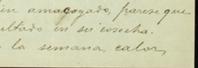 en amacogado, parese que
ultado en su cosecha.
la semana calor,